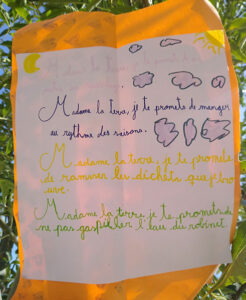 Madame la terre, je te promets de manger
au rythme des saisons.
Madame la terre, je te promets
de ramasser les déchets que je trou
uve.
Madame la terre, je te promets de
ne pas gaspiller l'eau du robinet